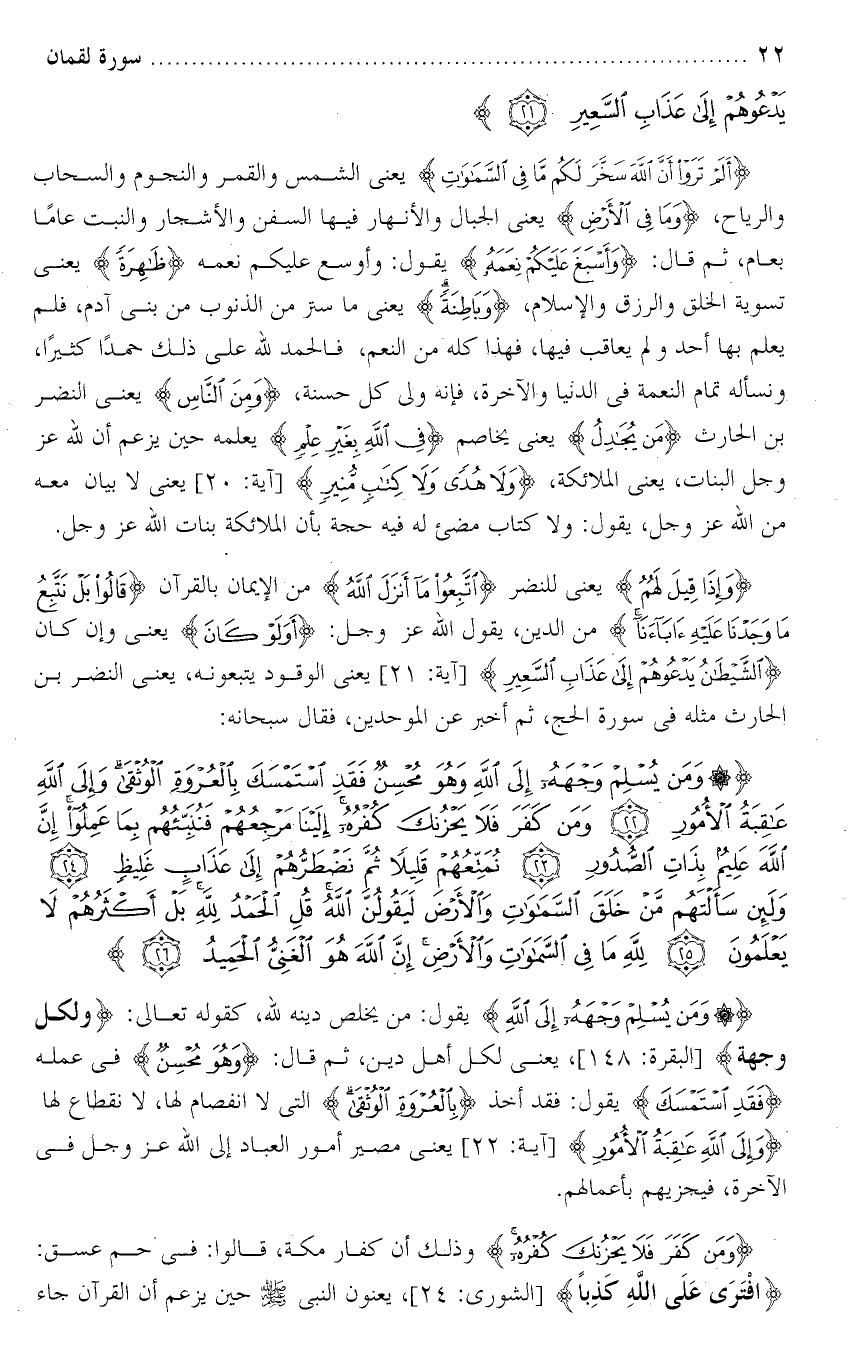 ٢٢ ........................................................................ سورة لقمان
يَدْعُوهُمْ إِلَىٰ عَذَابِ ٱلسَّعِيرِ ﴿٢١﴾ ﴾
﴿أَلَمْ تَرَوْا۟ أَنَّ ٱللَّهَ سَخَّرَ لَكُم مَّا فِى ٱلسَّمَـٰوَٰتِ﴾ يعنى الشمس والقمر والنجوم والسحاب
والرياح، ﴿وَمَا فِى ٱلْأَرْضِ﴾ يعنى الجبال والأنهار فيها السفن والأشجار والنبت عامًا
بعام، ثم قال: ﴿وَأَسْبَغَ عَلَيْكُمْ نِعَمَهُۥ﴾ يقول: وأوسع عليكم نعمه ﴿ظَـٰهِرَةً﴾ يعنى
تسوية الخلق والرزق والإسلام، ﴿وَبَاطِنَةً ۗ﴾ يعنى ما ستر من الذنوب من بنى آدم، فلم
يعلم بها أحد و لم يعاقب فيها، فهذا كله من النعم، فالحمد لله على ذلك حمدًا كثيرًا،
ونسأله تمام النعمة فى الدنيا والآخرة، فإنه ولى كل حسنة، ﴿وَمِنَ ٱلنَّاسِ﴾ يعنى النضر
بن الحارث ﴿مَن يُجَـٰدِلُ﴾ يعنى يخاصم ﴿فِى ٱللَّهِ بِغَيْرِ عِلْمٍ﴾ يعلمه حين يزعم أن لله عز
وجل البنات، يعنى الملائكة، ﴿وَلَا هُدًى وَلَا كِتَـٰبٍ مُّنِيرٍ﴾ [آية: ٢٠] يعنى لا بيان معه
من الله عز وجل، يقول: ولا كتاب مضئ له فيه حجة بأن الملائكة بنات الله عز وجل.
﴿وَإِذَا قِيلَ لَهُمُ﴾ يعنى للنضر ﴿ٱتَّبِعُوا۟ مَآ أَنزَلَ ٱللَّهُ﴾ من الإيمان بالقرآن ﴿قَالُوا۟ بَلْ نَتَّبِعُ
مَا وَجَدْنَا عَلَيْهِ ءَابَآءَنَآ ۚ﴾ من الدين، يقول الله عز وجل: ﴿أَوَلَوْ كَانَ﴾ يعنى وإن كان
﴿ٱلشَّيْطَـٰنُ يَدْعُوهُمْ إِلَىٰ عَذَابِ ٱلسَّعِيرِ﴾ [آية: ٢١] يعنى الوقود يتبعونه، يعنى النضر بن
الحارث مثله فى سورة الحج، ثم أخبر عن الموحدين، فقال سبحانه:
﴿۞ وَمَن يُسْلِمْ وَجْهَهُۥٓ إِلَى ٱللَّهِ وَهُوَ مُحْسِنٌ فَقَدِ ٱسْتَمْسَكَ بِٱلْعُرْوَةِ ٱلْوُثْقَىٰ ۗ وَإِلَى ٱللَّهِ
عَـٰقِبَةُ ٱلْأُمُورِ ﴿٢٢﴾ وَمَن كَفَرَ فَلَا يَحْزُنكَ كُفْرُهُۥٓ ۚ إِلَيْنَا مَرْجِعُهُمْ فَنُنَبِّئُهُم بِمَا عَمِلُوٓا۟ ۚ إِنَّ
ٱللَّهَ عَلِيمٌۢ بِذَاتِ ٱلصُّدُورِ ﴿٢٣﴾ نُمَتِّعُهُمْ قَلِيلًا ثُمَّ نَضْطَرُّهُمْ إِلَىٰ عَذَابٍ غَلِيظٍ ﴿٢٤﴾
وَلَئِن سَأَلْتَهُم مَّنْ خَلَقَ ٱلسَّمَـٰوَٰتِ وَٱلْأَرْضَ لَيَقُولُنَّ ٱللَّهُ ۚ قُلِ ٱلْحَمْدُ لِلَّهِ ۚ بَلْ أَكْثَرُهُمْ لَا
يَعْلَمُونَ ﴿٢٥﴾ لِلَّهِ مَا فِى ٱلسَّمَـٰوَٰتِ وَٱلْأَرْضِ ۚ إِنَّ ٱللَّهَ هُوَ ٱلْغَنِىُّ ٱلْحَمِيدُ ﴿٢٦﴾ ﴾
﴿۞ وَمَن يُسْلِمْ وَجْهَهُۥٓ إِلَى ٱللَّهِ﴾ يقول: من يخلص دينه لله، كقوله تعالى: ﴿ولكل
وجهة﴾ [البقرة: ١٤٨]، يعنى لكل أهل دين، ثم قال: ﴿وَهُوَ مُحْسِنٌ﴾ فى عمله
﴿فَقَدِ ٱسْتَمْسَكَ﴾ يقول: فقد أخذ ﴿بِٱلْعُرْوَةِ ٱلْوُثْقَىٰ ۗ﴾ التى لا انفصام لها، لا نقطاع لها
﴿وَإِلَى ٱللَّهِ عَـٰقِبَةُ ٱلْأُمُورِ﴾ [آية: ٢٢] يعنى مصير أمور العباد إلى الله عز وجل فى
الآخرة، فيجزيهم بأعمالهم.
﴿وَمَن كَفَرَ فَلَا يَحْزُنكَ كُفْرُهُۥٓ ۚ﴾ وذلك أن كفار مكة، قالوا: فى حم عسق:
﴿افْتَرَى عَلَى اللَّهِ كَذِباً﴾ [الشورى: ٢٤]، يعنون النبى ﷺ حين يزعم أن القرآن جاء